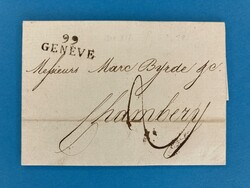 99
GENÈVE
Messieurs Marc Byrde & C.
Chambery